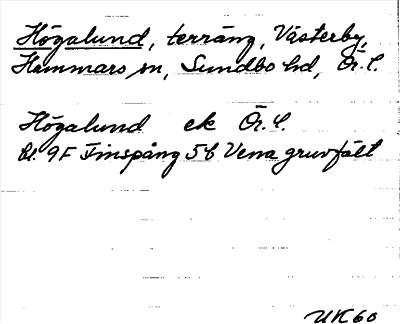 Högalund, terräng, Västerby,
Hammars sn, Sundbo hd, Ör. l.
Högalund ek Ör. l.
Bl. 9F Finspång 5b Vena gruvfält
UK60